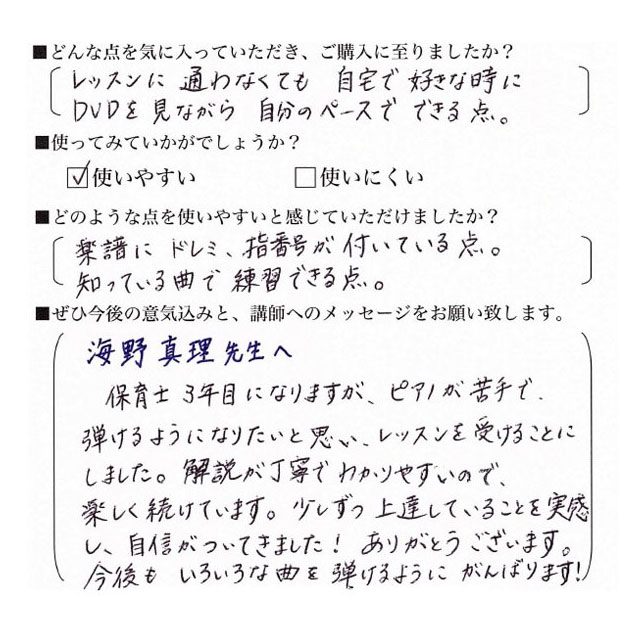 ■どんな点を気に入っていただき、ご購入に至りましたか？
レッスンに 通わなくても 自宅で 好きな時に
DVDを見ながら 自分のペースで できる点。
■使ってみていかがでしょうか？
☑使いやすい □使いにくい
■どのような点を使いやすいと感じていただけましたか？
楽譜に ドレミ、指番号が 付いている点。
知っている曲で 練習できる点。
■ぜひ今後の意気込みと、講師へのメッセージをお願い致します。
海野真理先生へ
保育士3年目になりますが、ピアノが苦手で、
弾けるようになりたいと思い、レッスンを受けることに
しました。解説が丁寧でわかりやすいので、
楽しく続けています。少しずつ上達していることを実感
し、自信がついてきました！ ありがとうございます。
今後も いろいろな曲を弾けるように がんばります！